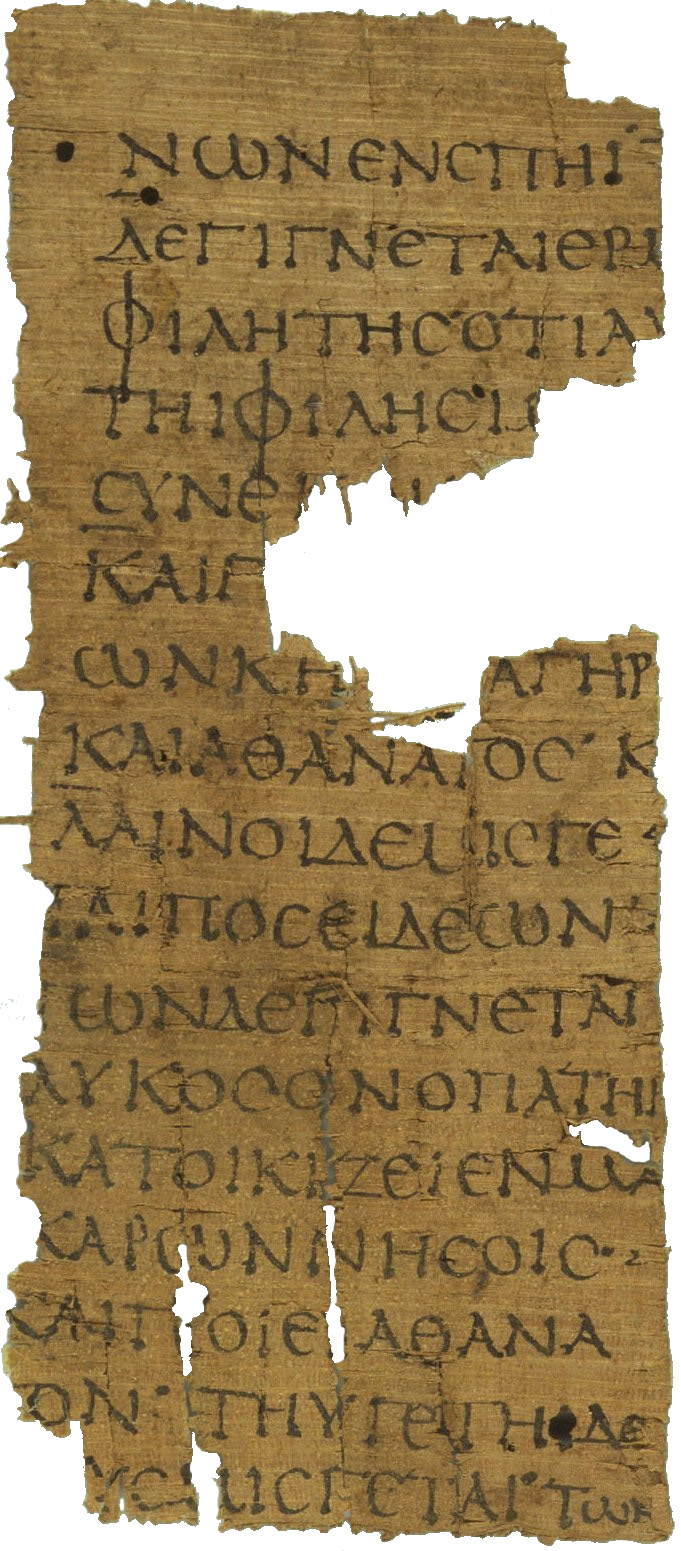 ΝΩΝ ΕΝ ϹΠΗΙ·
ΔΕ ΓΙΓΝΕΤΑΙ ΕΡΜ
ΦΙΛΗΤΗϹ ΟΤΙ ΑΥ
ΤΗΙ ΦΙΛΗϹΙ
ϹΥΝΕ
ΚΑΙ Γ
ϹΩΝ ΚΗ ΑΓΗΡ
ΚΑΙ ΑΘΑΝΑΤΟϹ· Κ
ΛΑΙΝΟΙ ΔΕ ΜΙϹΓΕ
ΤΑΙ ΠΟϹΕΙΔΕΩΝ·
ΤΩΝ ΔΕ ΓΙΓΝΕΤΑΙ
ΛΥΚΟϹ ΟΝ Ο ΠΑΤΗΡ
ΚΑΤΟΙΚΙΖΕΙ ΕΝ ΜΑ
ΚΑΡΩΝ ΝΗϹΟΙϹ·
ΚΑΙ ΠΟΙΕΙ ΑΘΑΝΑ
ΤΟΝ· ΤΗΥΓΕΤΗΙ ΔΕ
ΥϹ ΜΙϹΓΕΤΑΙ· ΤΩΝ